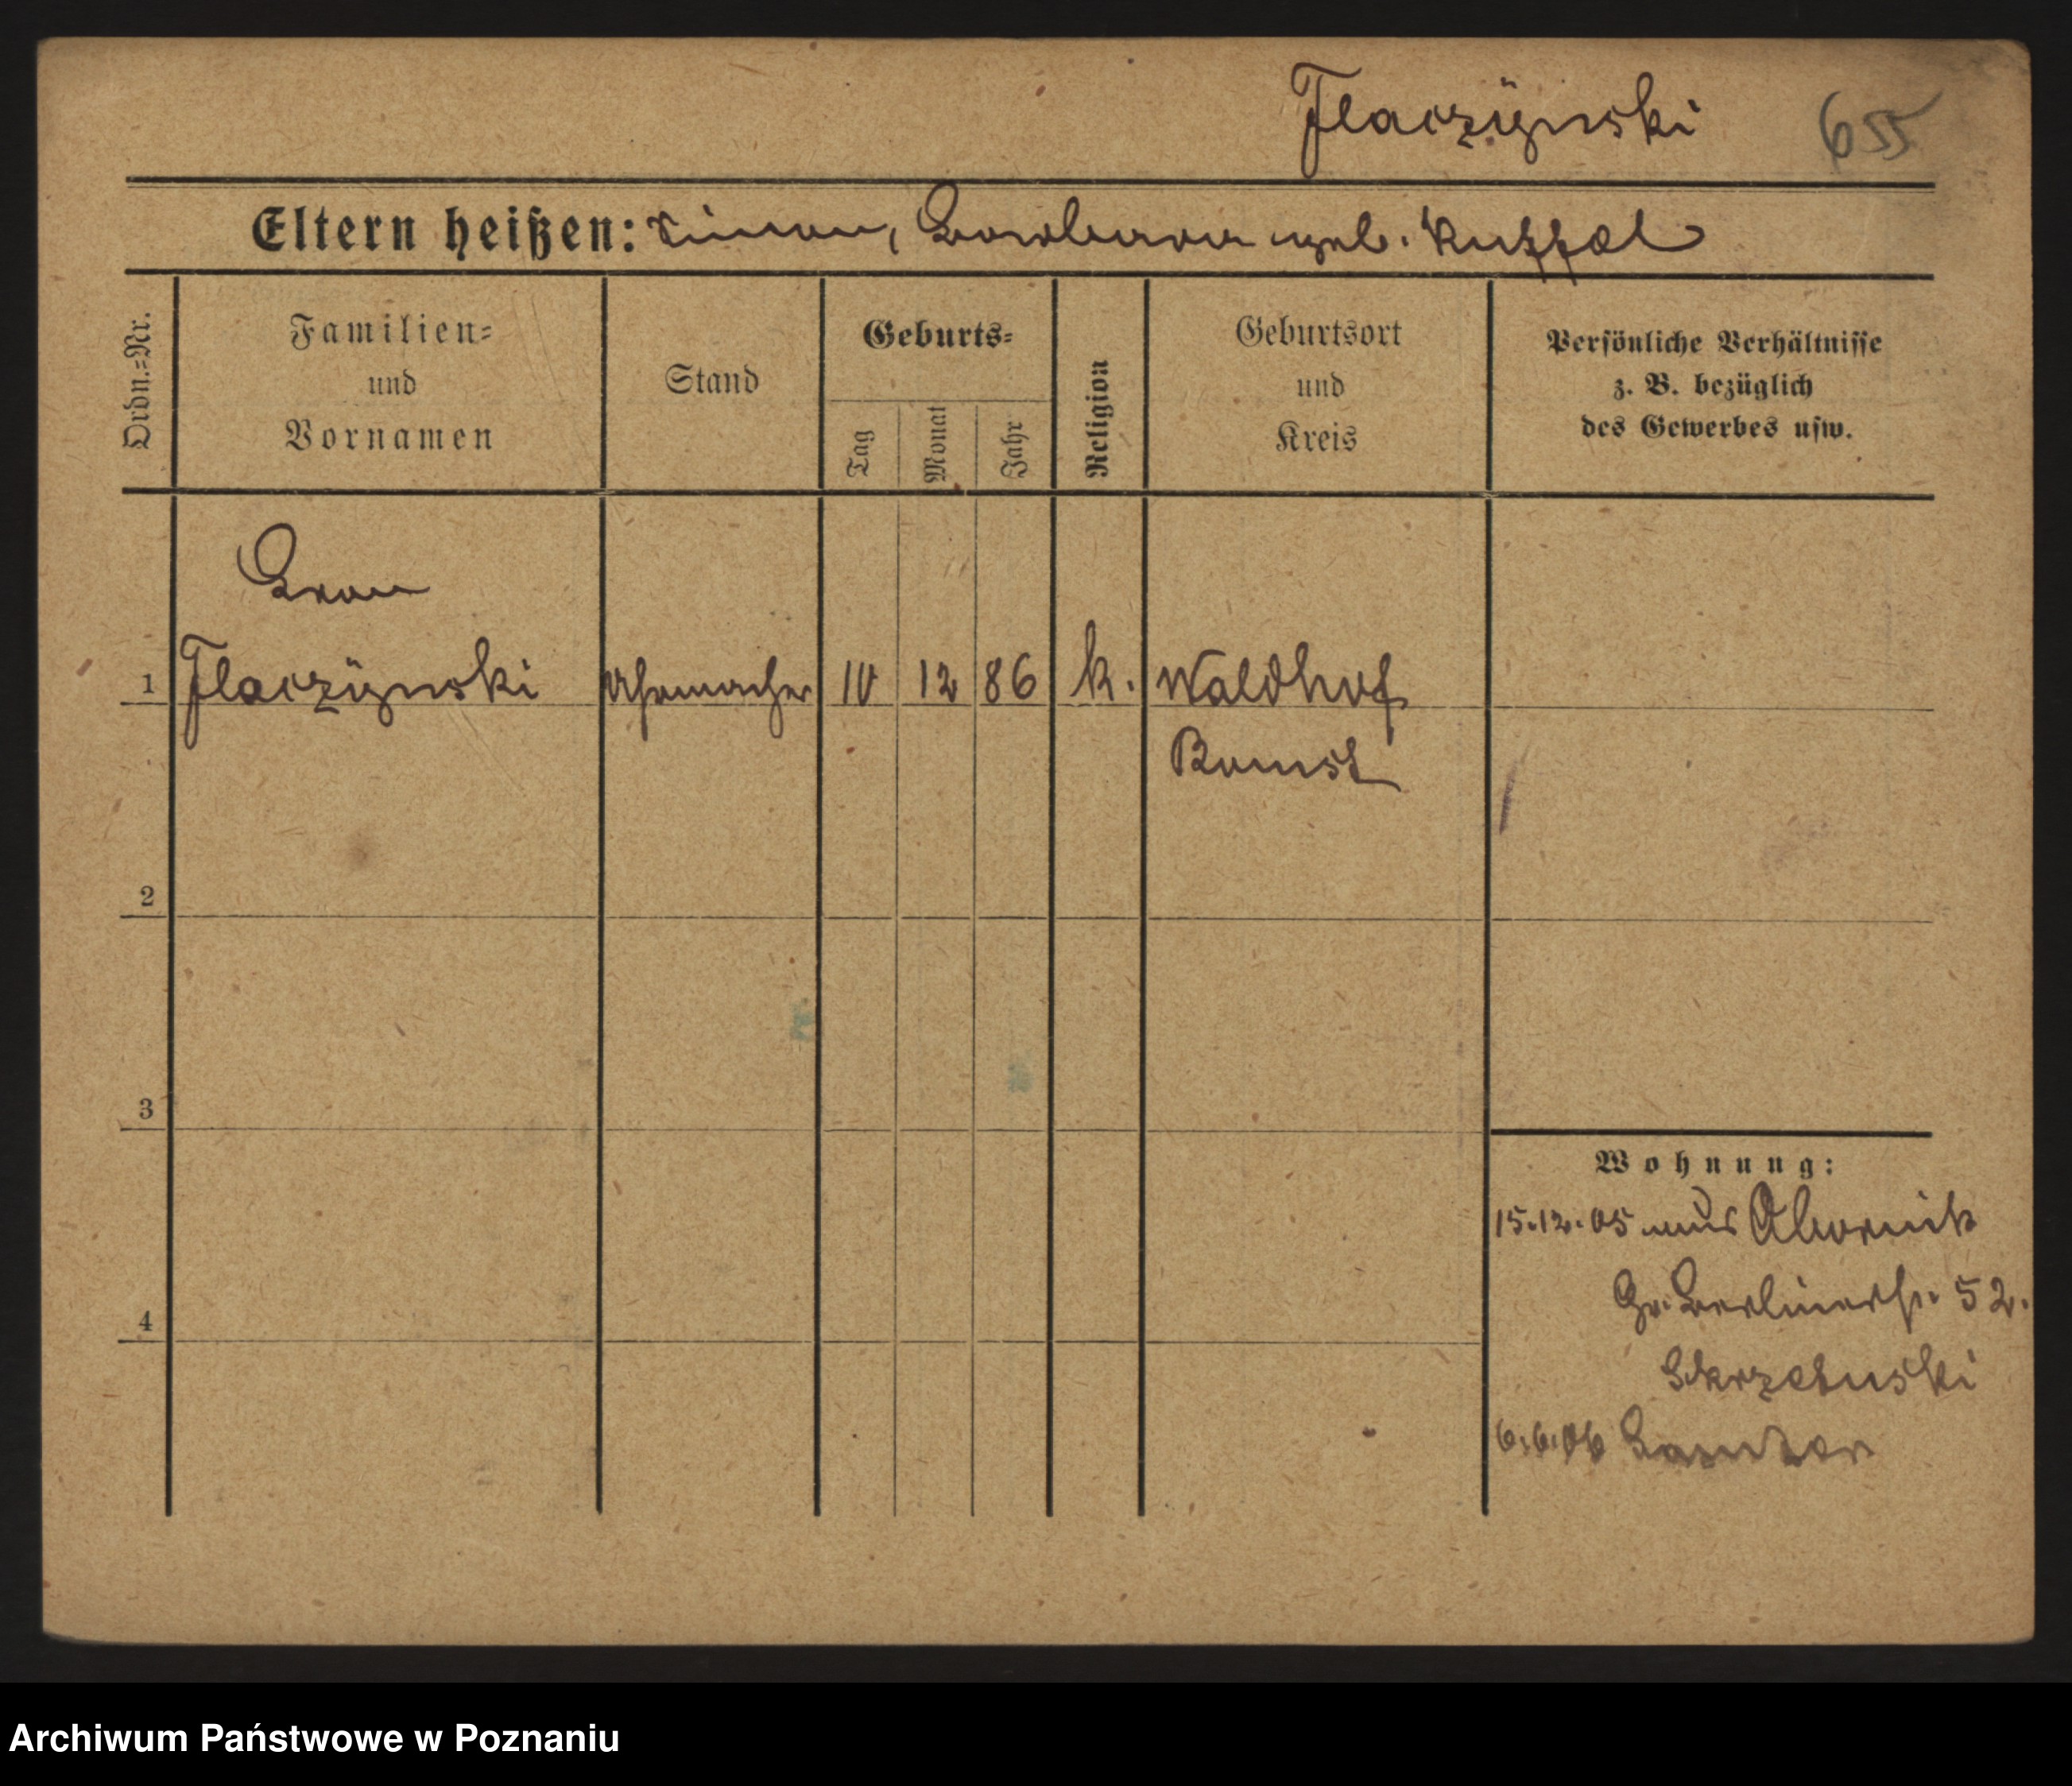 Flaczÿnski 655
Eltern heißen: Simon, Barbara geb.
Ordn.=Nr.
Familien=
und
Vornamen
Stand
Geburts=
Tag
Monat
Jahr
Religion
Geburtsort
und
Kreis
Persönliche Verhältnisse
z. B. bezüglich
des Gewerbes usw.
Leon
1 Flaczÿnski Uhrmacher 10 12 86 k. Waldhof
Bomst
2
3
4
Wohnung:
15.12.05 aus Obornik
Gr. Berlinerstr. 52.
6.6.06 Samter
Archiwum Państwowe w Poznaniu